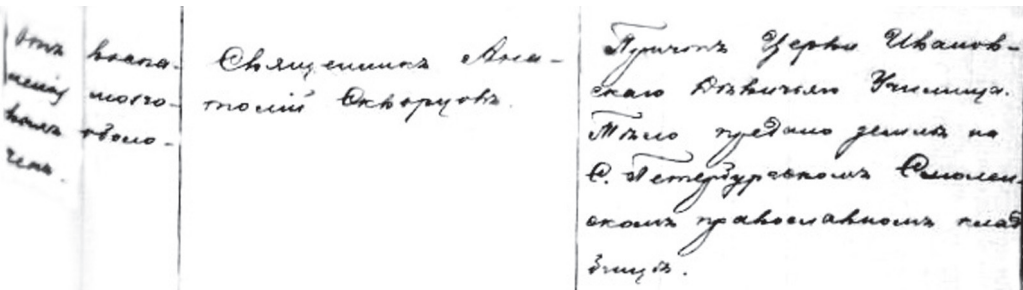 Отъ воспа-
ленія мозго-
выхъ оболо-
чекъ.
Священникъ Ана-
толій Скворцовъ.
Причтъ Церкви Иванов-
скаго Дѣвичьяго Училища.
Тѣло предано землѣ на
С. Петербургскомъ Смолен-
скомъ православномъ клад-
бищѣ.